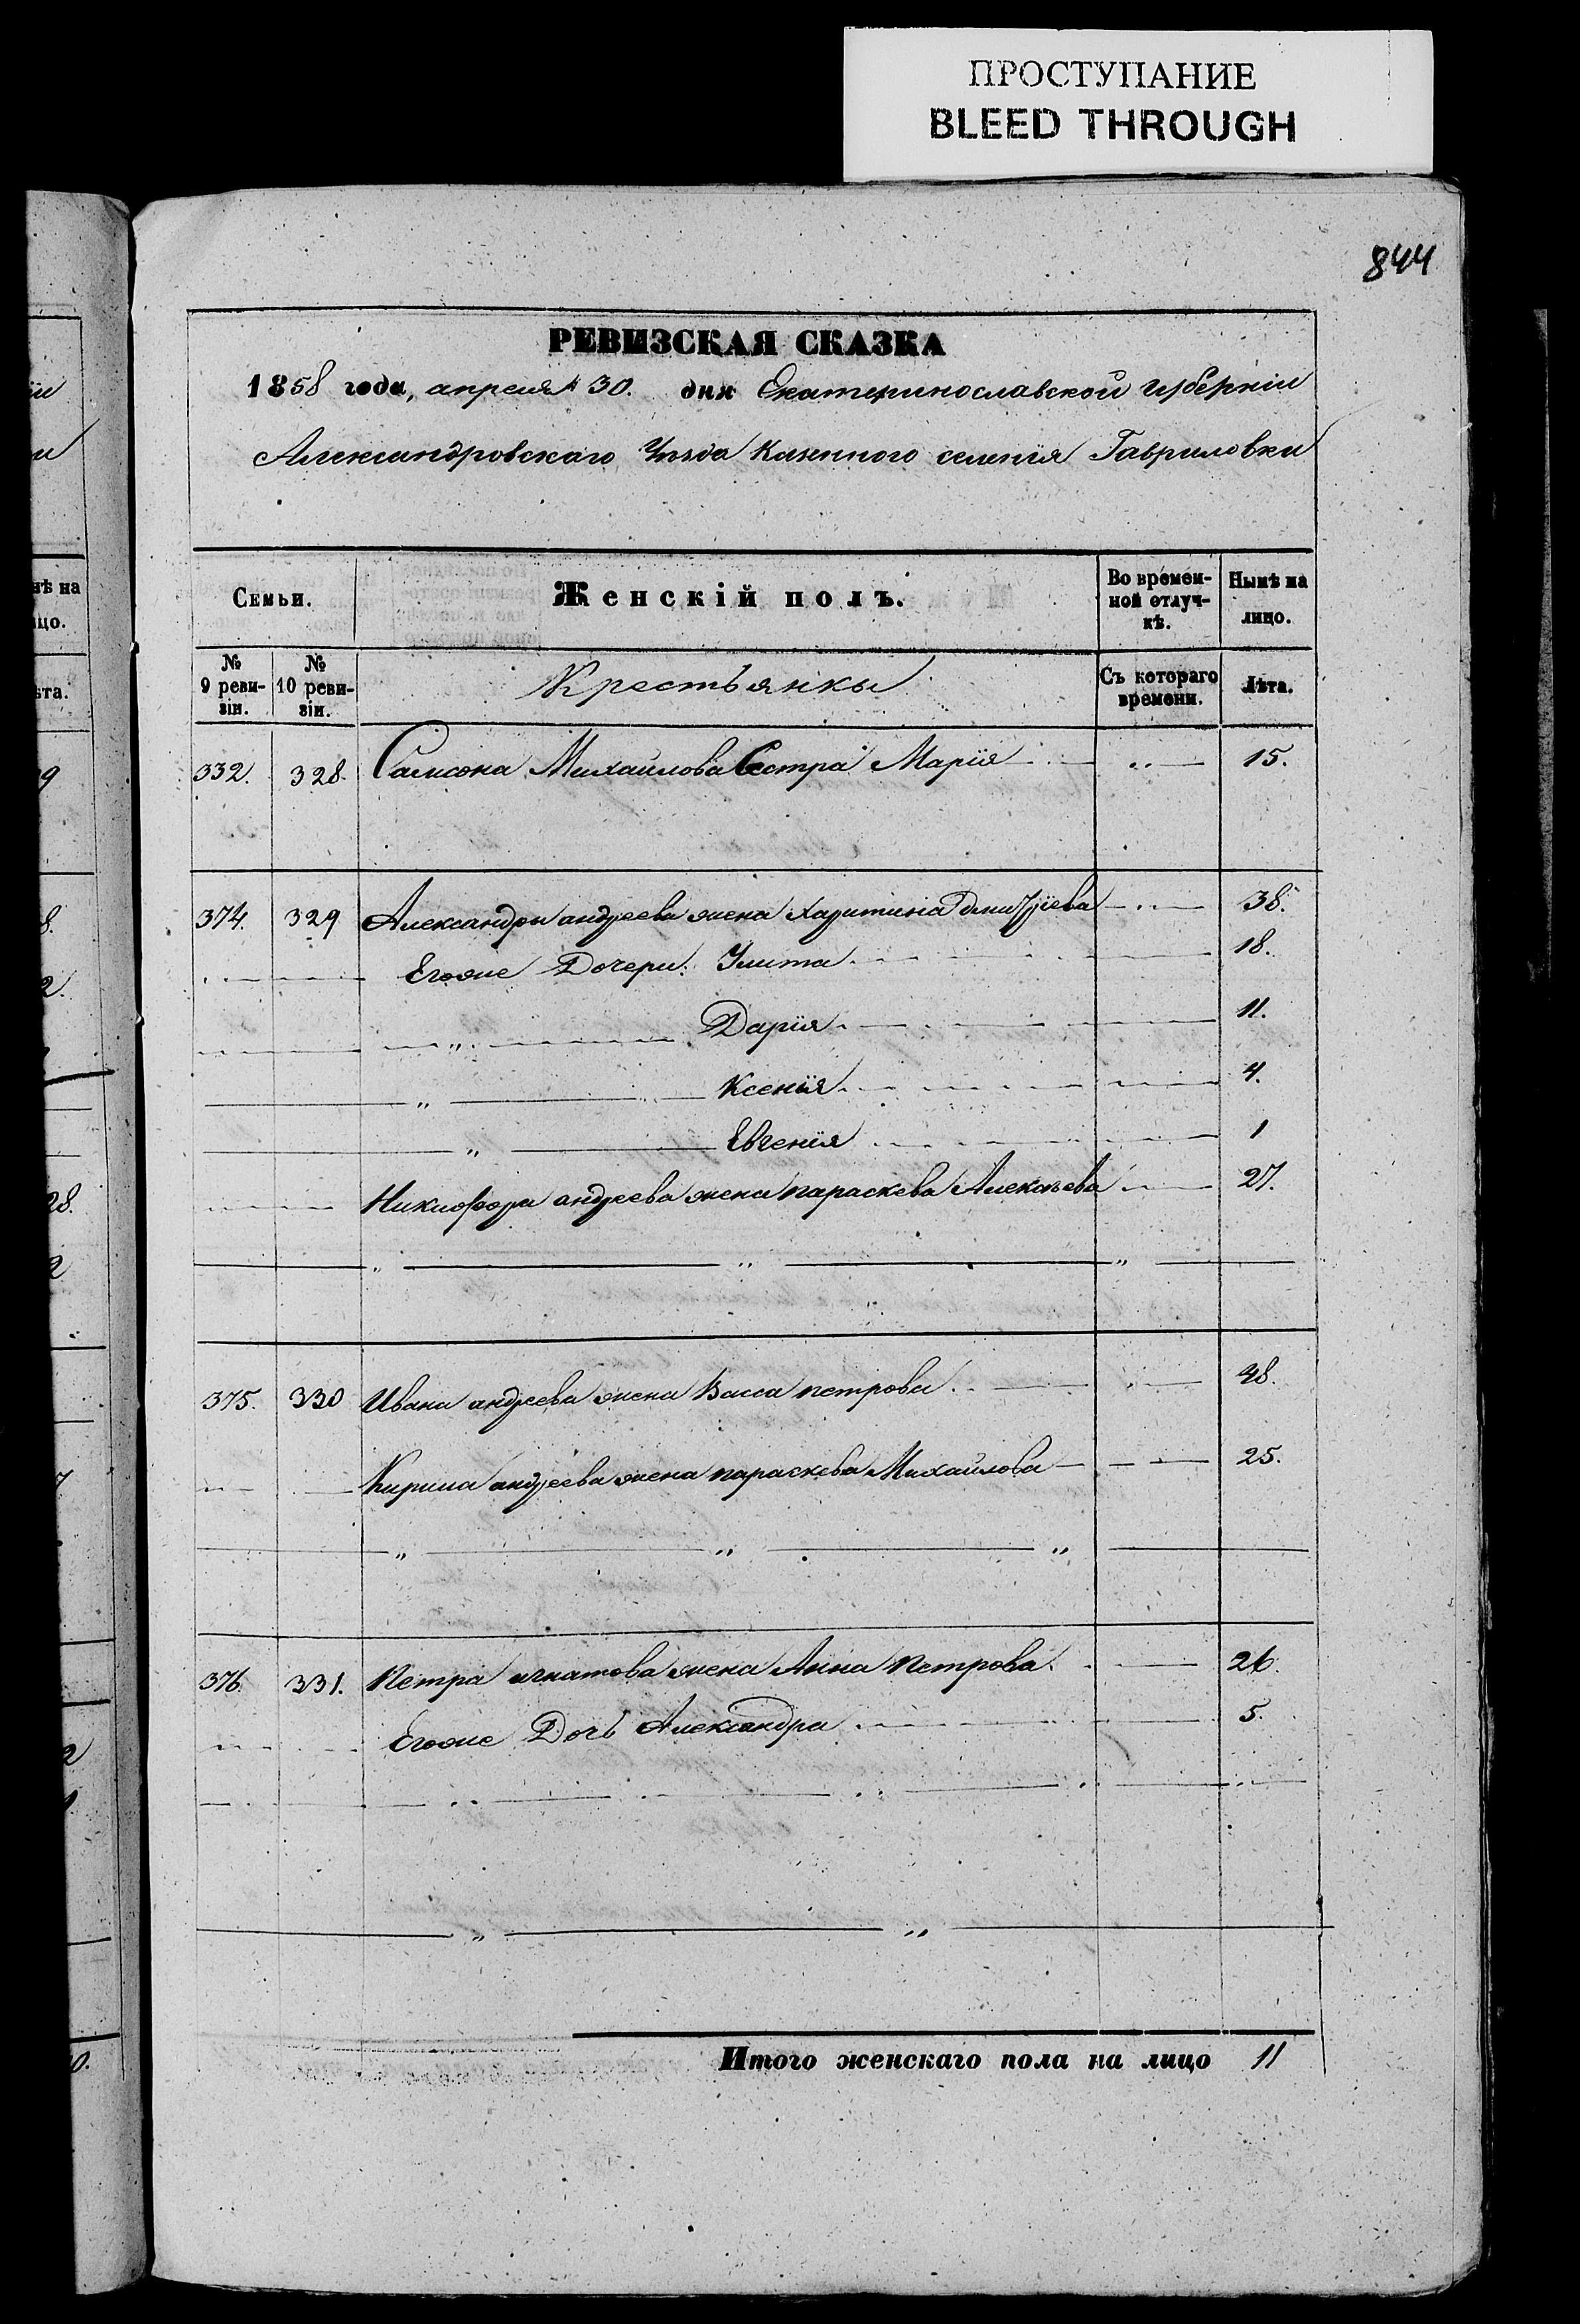 ПРОСТУПАНИЕ
BLEED THROUGH
844
РЕВИЗСКАЯ СКАЗКА
1858 года, апреля 30. дня Екатеринославской Губерніи
Александровскаго Уѣзда Казенного селенія Гавриловки
Семьи. Женскій полъ. Во времен-ной отлуч-кѣ. Нынѣ на лицо.
№ 9 реви-зіи. № 10 реви-зіи. Крестьянки Съ котораго времени. Лѣта.
332. 328. Самсона Михайлова Сестра Марія 15.
374. 329 Александры андреева жена Харитина Дмитріева 38.
Егоже Дочери: Улита 18.
Дарія 11.
Ксенія 4.
Евгенія 1
Никифора андреева жена параскева Алексѣева 27.
375. 330 Ивана андреева жена Васса петрова 48.
Кирила андреева жена параскева Михайлова 25.
376. 331. Петра игнатова жена Анна Петрова 26.
Егоже Дочь Александра 5.
Итого женскаго пола на лицо 11